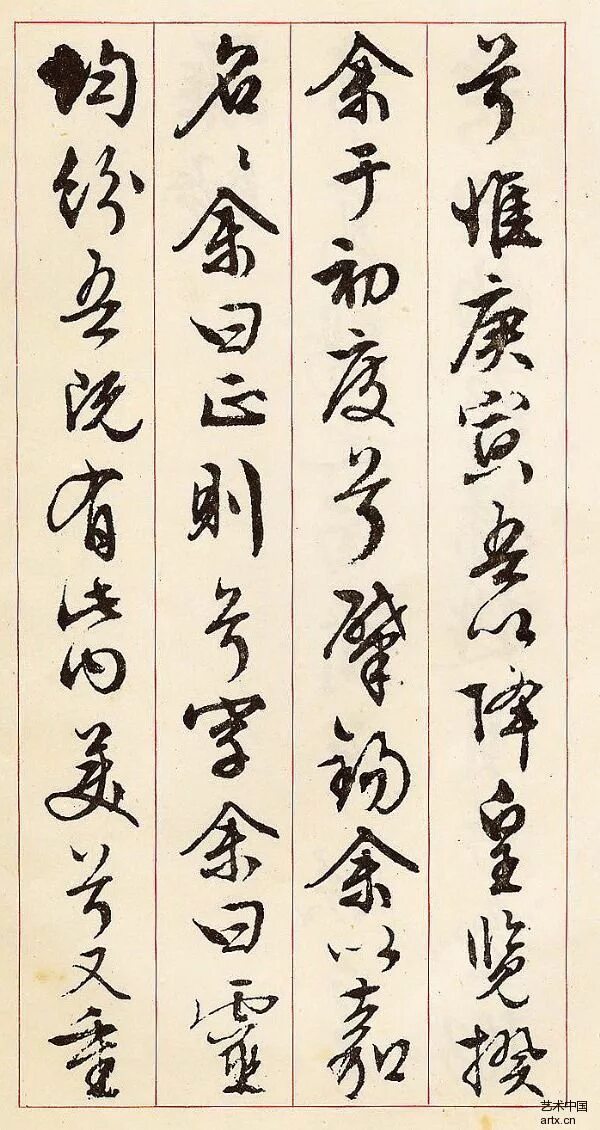 兮惟庚寅吾以降皇览揆
余于初度兮肇锡余以嘉
名名余曰正则兮字余曰靈
均纷吾既有此内美兮又重
艺术中国
artx.cn